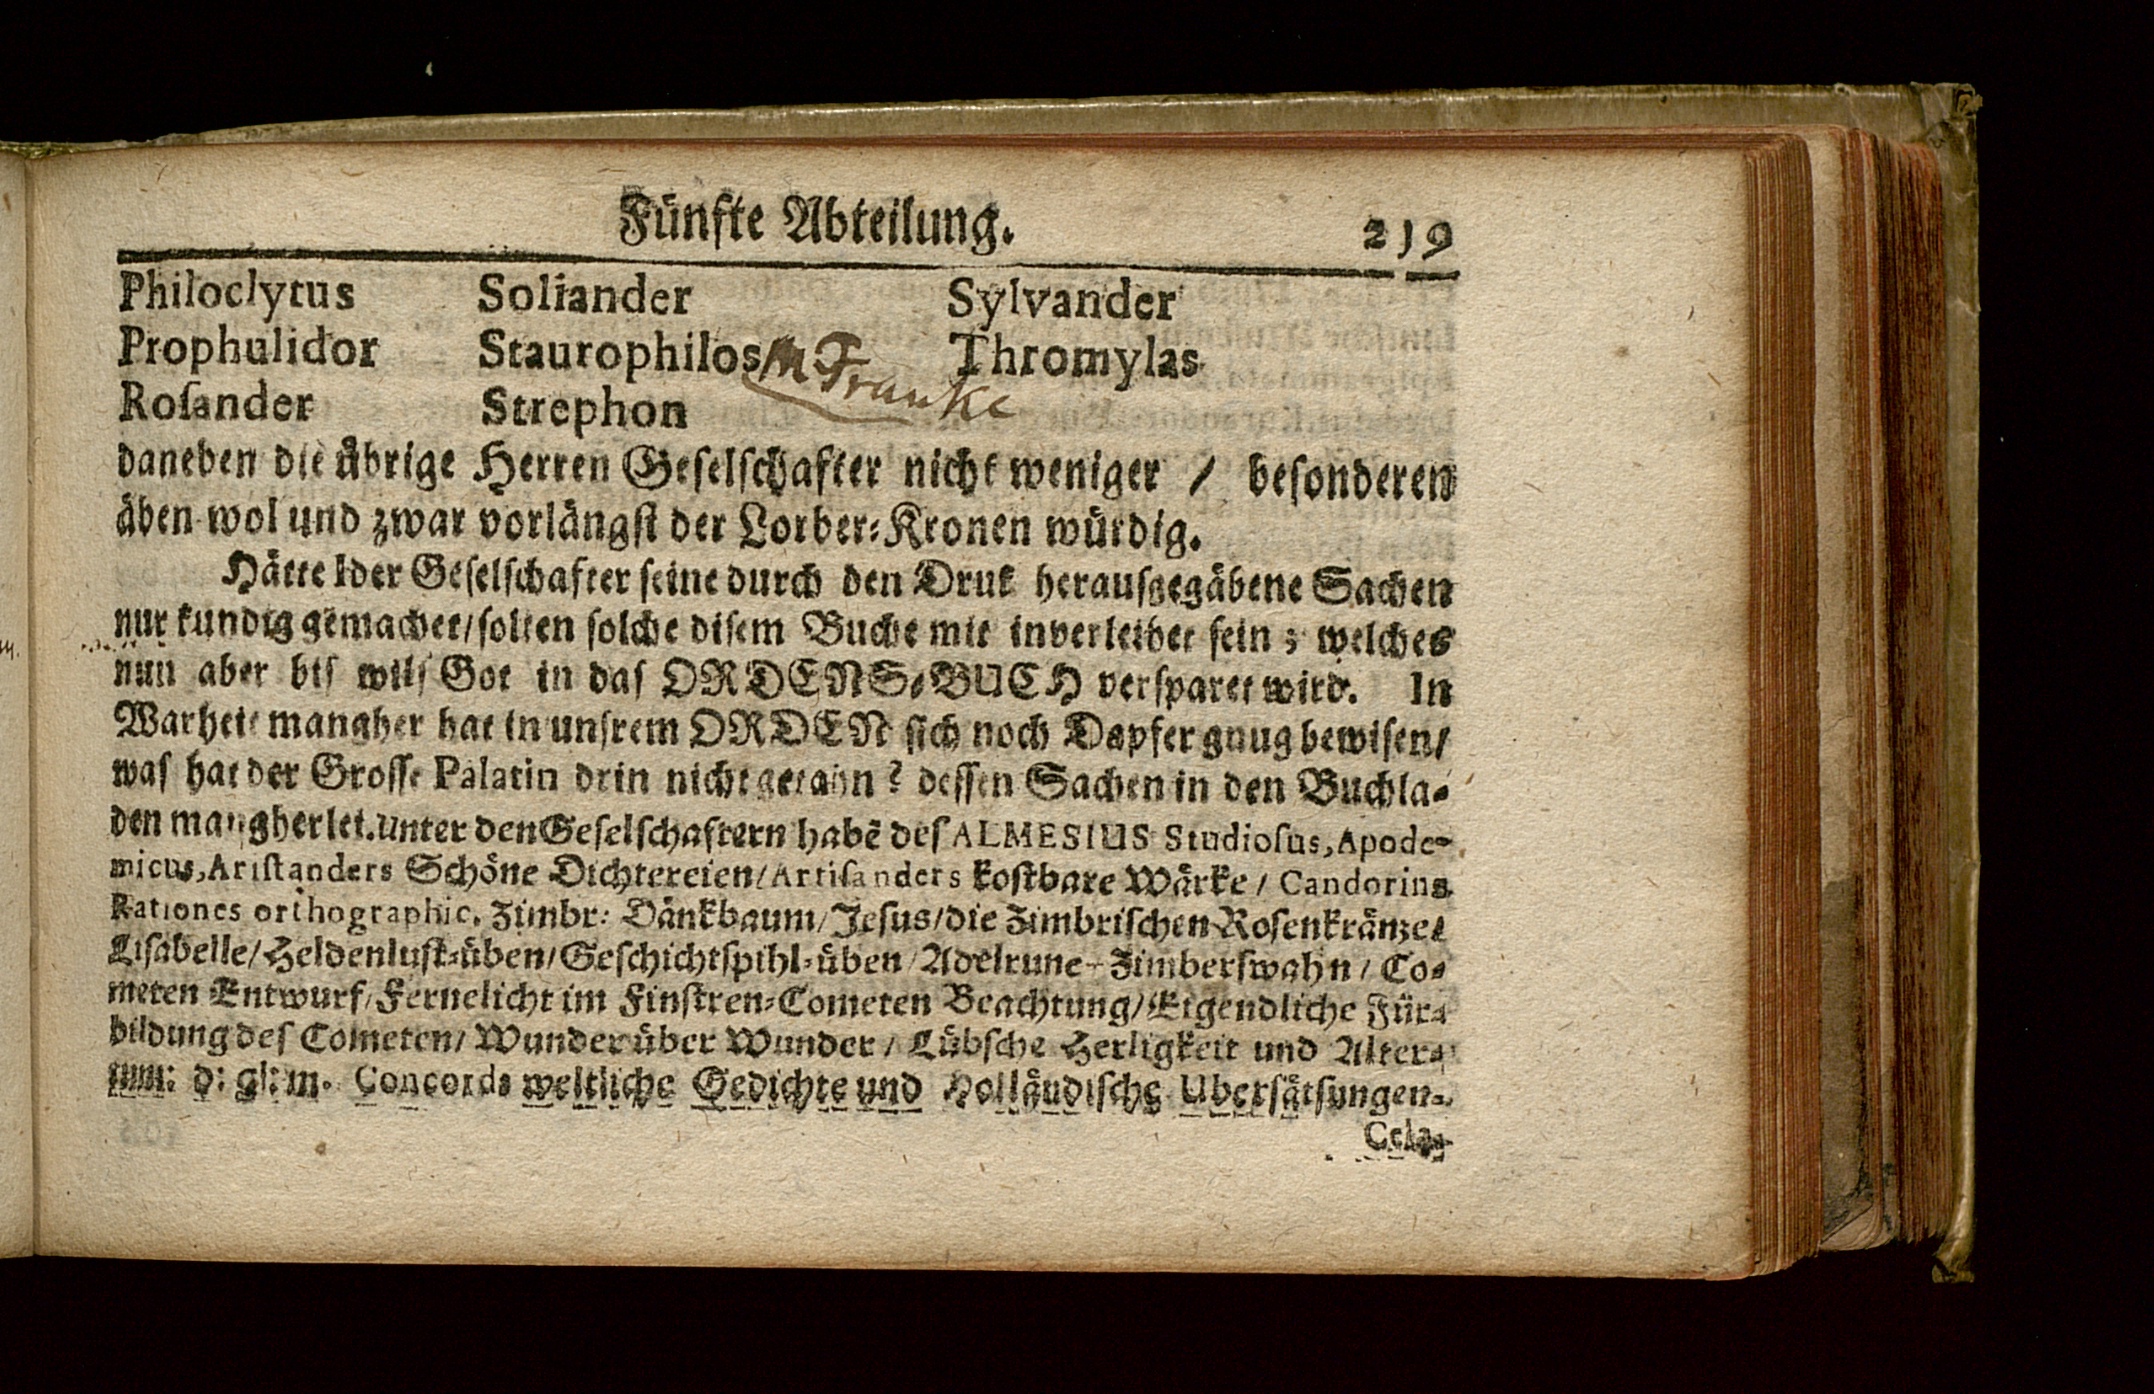 Fünfte Abteilung. 219
Philoclytus Soliander Sylvander
Prophulidor Staurophilos M Franke Thromylas
Roſander Strephon
daneben die übrige Herren Geſelſchafter nicht weniger / beſonderen
äben wol und zwar vorlängſt der Lorber-Kronen würdig.
Hätte Ider Geſelſchafter ſeine durch den Druk herauſgegäbene Sachen
nur kundig gemachet/ ſolten ſolche diſem Buche mit inverleibet ſein; welches
nun aber bis wilſ Got in daſ ORDENS-BUCH verſparet wird. In
Warheit mangher hat in unſrem ORDEN ſich noch Dapfer gnug bewiſen/
waſ hat der Groſſe Palatin drin nicht getahn? deſſen Sachen in den Buchla-
den mangherlei. unter den Geſelſchaftern habē deſ ALMESIUS Studioſus, Apode-
micus, Ariſtanders Schöne Dichtereien/ Artiſanders koſtbare Wärke / Candorins
Rationes orthographic. Zimbr: Dänkbaum/ Jeſus/ die Zimbriſchen Roſenkränze/
Liſabelle/ Heldenluſt-üben/ Geſchichtſpihl-üben/ Adelrune- Zimberſwahn / Co-
meten Entwurf/ Fernelicht im Finſtren-Cometen Beachtung/ Eigendliche Für-
bildung deſ Cometen/ Wunder über Wunder / Lübſche Herligkeit und Alter-
tum: d: gl: m. Concords weltliche Gedichte und Holländiſche Uberſätſungen.
Cela-